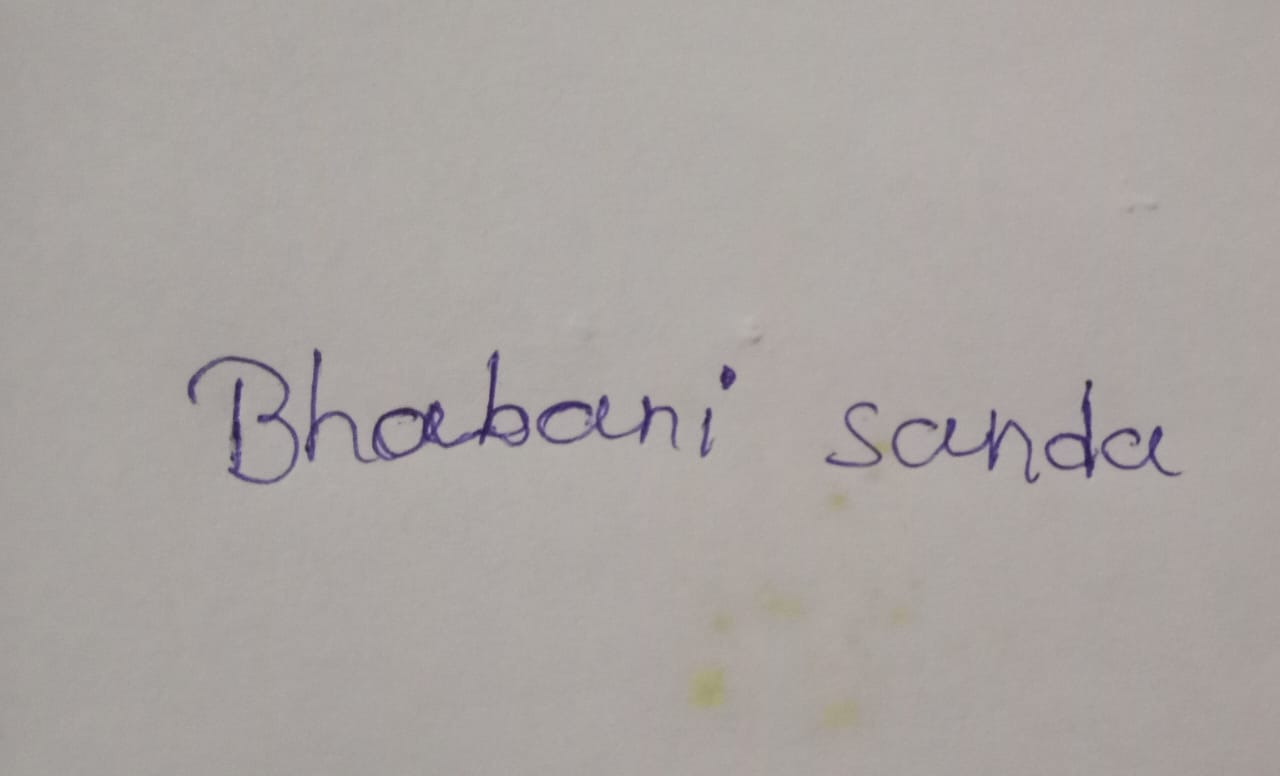 Bhabani sanda